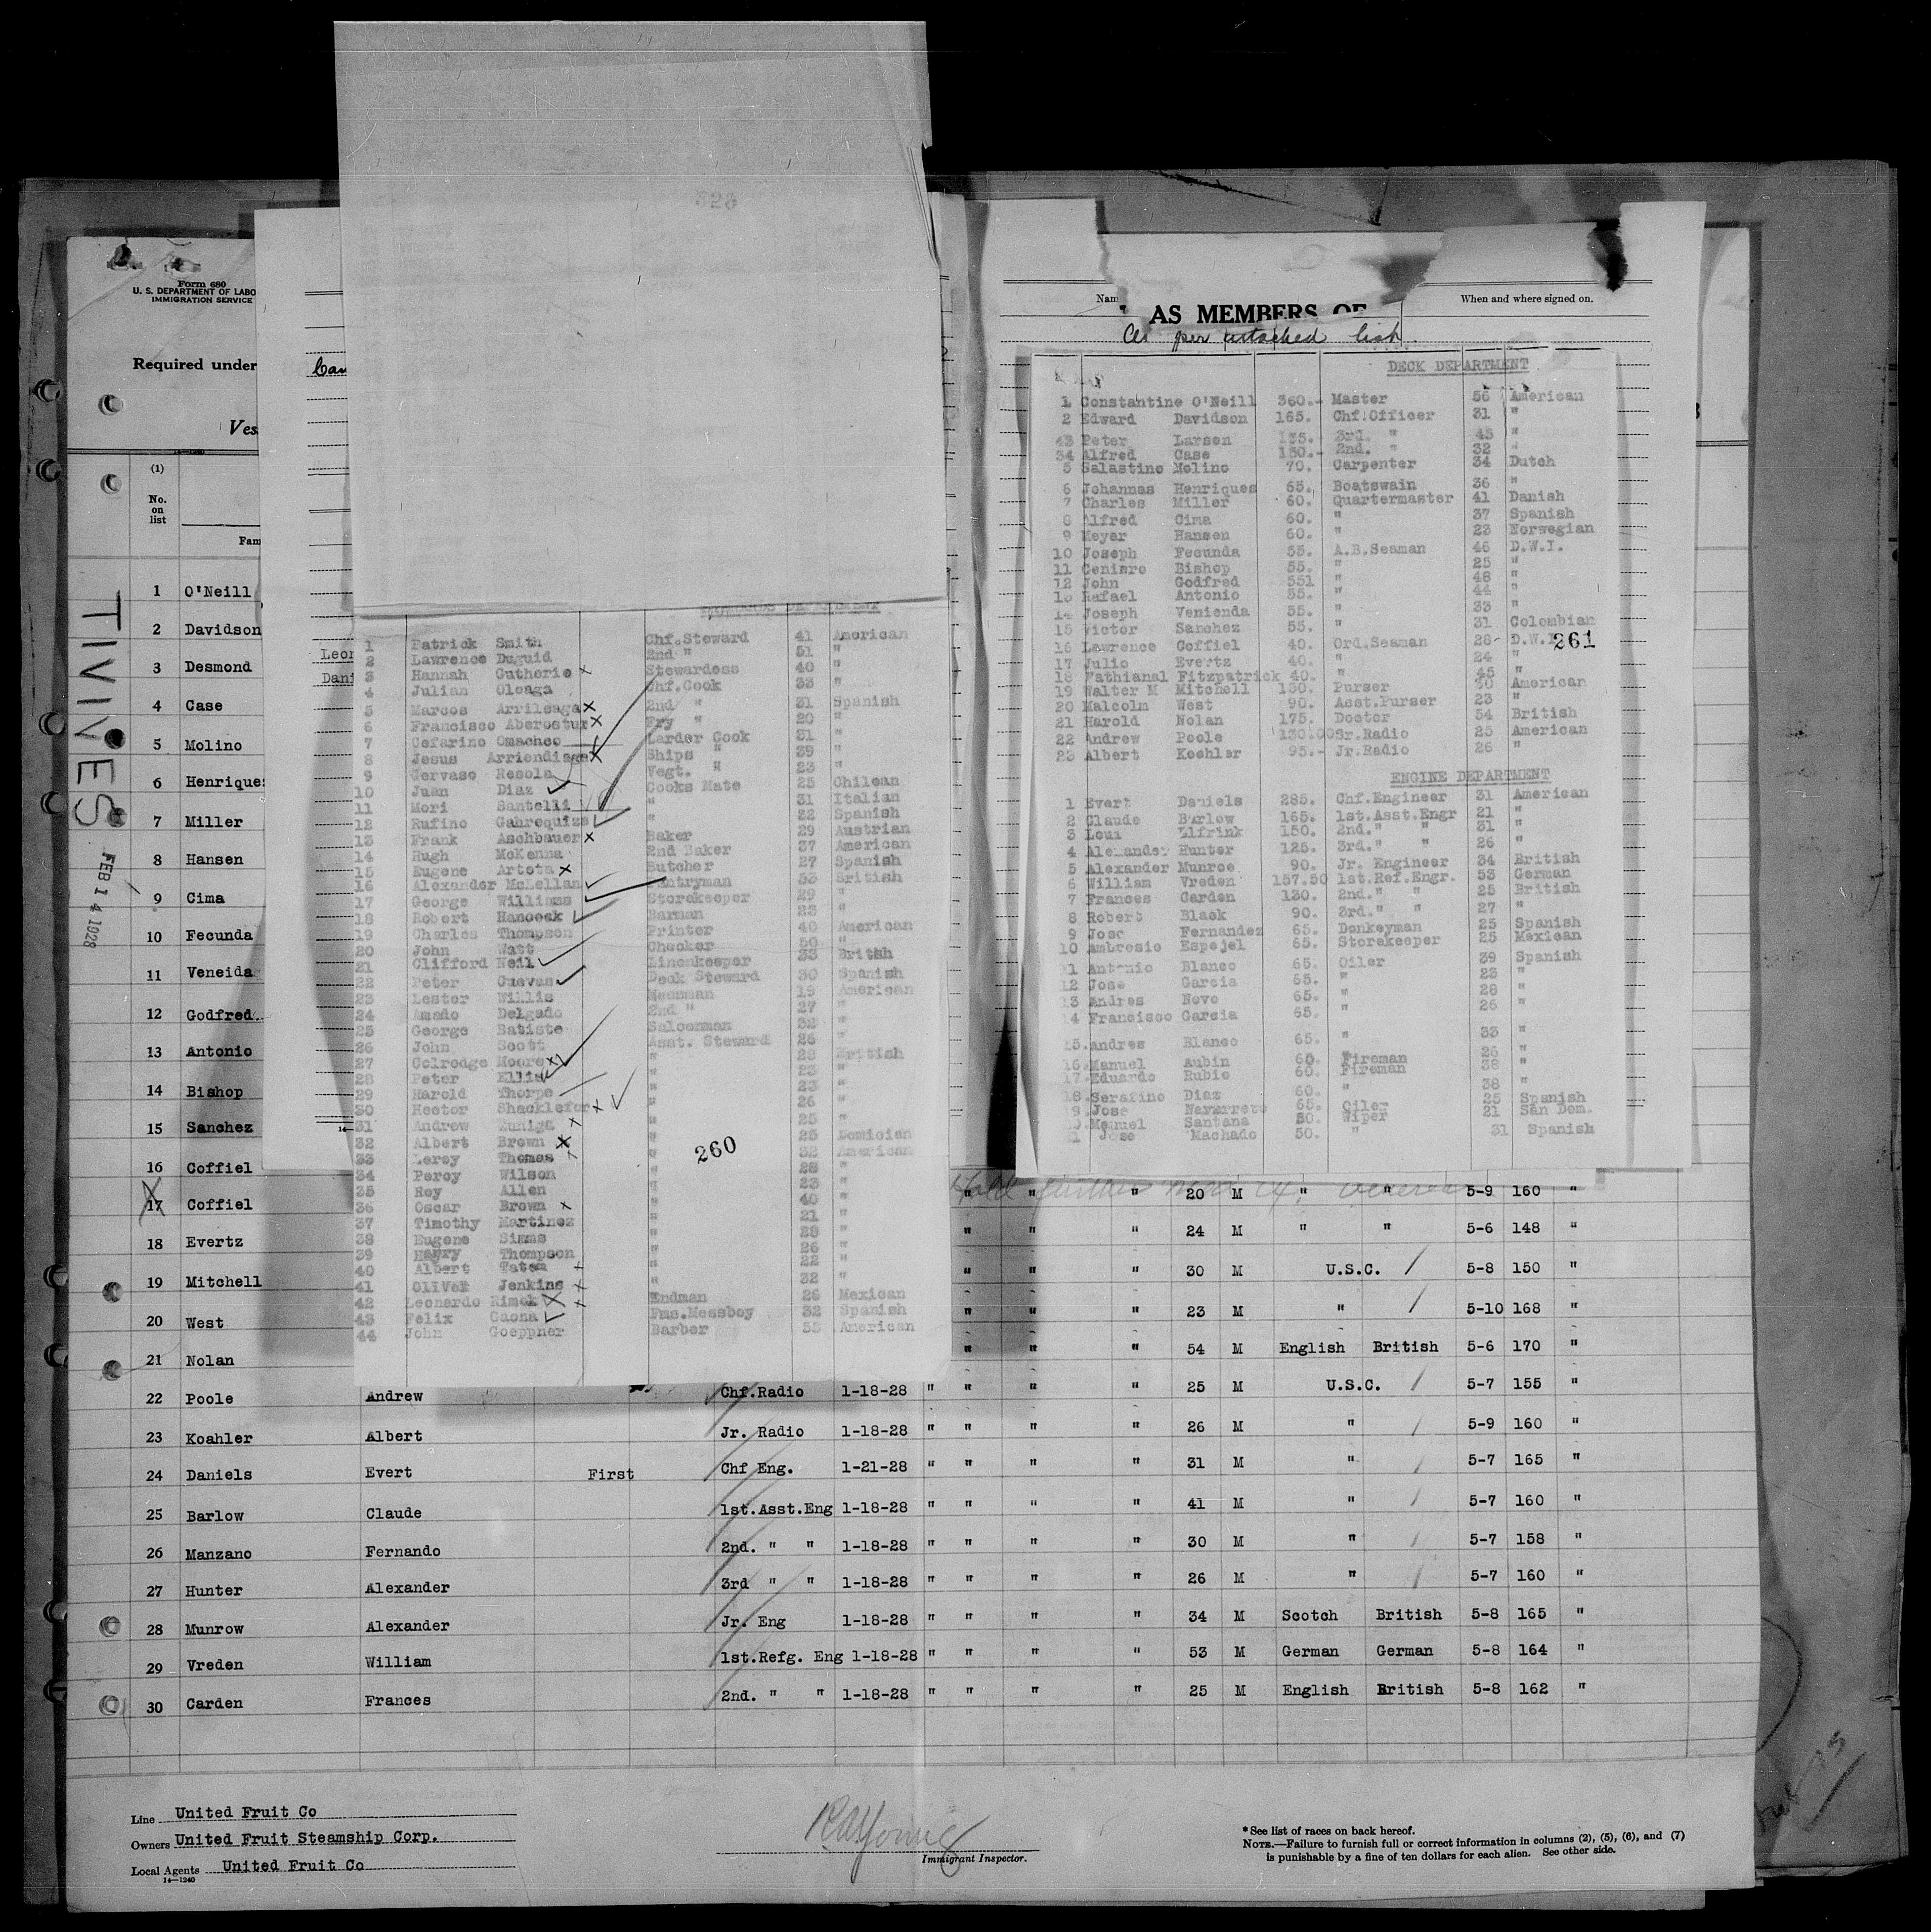 Form 680
U. S. DEPARTMENT OF LABO
IMMIGRATION SERVICE
Required under
Ves
TIVIVES
FEB 14 1928
(1)
No.
on
list
Fam
1 O'Neill
2 Davidson
3 Desmond
4 Case
5 Molino
6 Henriques
7 Miller
8 Hansen
9 Cima
10 Fecunda
11 Veneida
12 Godfred
13 Antonio
14 Bishop
15 Sanchez
16 Coffiel
17 Coffiel " " 20 M " " 5-9 160 "
18 Evertz " " " 24 M " " 5-6 148 "
19 Mitchell " " " 30 M U.S.C. 5-8 150 "
20 West " " " 23 M " 5-10 168 "
21 Nolan " " " 54 M English British 5-6 170 "
22 Poole Andrew Chf.Radio 1-18-28 " " " " 25 M U.S.C. 5-7 155 "
23 Koahler Albert Jr. Radio 1-18-28 " " " " 26 M " 5-9 160 "
24 Daniels Evert First Chf Eng. 1-21-28 " " " " 31 M " 5-7 165 "
25 Barlow Claude 1st.Asst.Eng 1-18-28 " " " " 41 M " 5-7 160 "
26 Manzano Fernando 2nd. " " 1-18-28 " " " " 30 M " 5-7 158 "
27 Hunter Alexander 3rd " " 1-18-28 " " " " 26 M " 5-7 160 "
28 Munrow Alexander Jr. Eng 1-18-28 " " " " 34 M Scotch British 5-8 165 "
29 Vreden William 1st.Refg. Eng 1-18-28 " " " " 53 M German German 5-8 164 "
30 Carden Frances 2nd. " " 1-18-28 " " " " 25 M English British 5-8 162 "
Line United Fruit Co
Owners United Fruit Steamship Corp.
Local Agents United Fruit Co
14—1240
Immigrant Inspector.
* See list of races on back hereof.
NOTE.—Failure to furnish full or correct information in columns (2), (5), (6), and (7)
is punishable by a fine of ten dollars for each alien. See other side.
Leon
Dani
1 Patrick Smith Chf.Steward 41 American
2 Lawrence Duguid 2nd " 51 "
3 Hannah Gutherie x Stewardess 40 "
4 Julian Oleaga Chf.Cook 33 "
5 Marcos Arrileaga x 2nd " 31 Spanish
6 Francisco Aberostur x Fry " 20 "
7 Cefarino Omacheo Larder Cook 31 "
8 Jesus Arriendiaga x Ships " 39 "
9 Gervaso Resola Vegt. " 23 "
10 Juan Diaz Cooks Mate 25 Chilean
11 Mori Santelli " 31 Italian
12 Rufino Gahrequizs " 32 Spanish
13 Frank Aschbauer x Baker 29 Austrian
14 Hugh McKenna 2nd Baker 37 American
15 Eugene Arteta x Butcher 27 Spanish
16 Alexander McLellan Pantryman 53 British
17 George Williams Storekeeper 29 "
18 Robert Hancock Barman 23 "
19 Charles Thompson Printer 40 American
20 John Watt Checker 50 "
21 Clifford Neil Linenkeeper 33 Britsh
22 Peter Cuevas Deck Steward 30 Spanish
23 Lester Willis Messman 19 American
24 Amado Delgado 2nd " 27 "
25 George Batiste Saloonman 32 "
26 John Scott Asst. Steward 26 "
27 Colredge Moore x " 28 British
28 Peter Ellis " 23 "
29 Harold Thorpe " 23 "
30 Hector Shacklefor x " 26 "
31 Andrew Zuniga x " 25 "
32 Albert Brown x " 25 Domician
33 Leroy Thomas " 32 American
34 Percy Wilson " 28 "
35 Roy Allen " 23 "
36 Oscar Brown x " 40 "
37 Timothy Martinez " 21 "
38 Eugene Simms " 28 "
39 Harry Thompson " 26 "
40 Albert Tatem " 22 "
41 Oliver Jenkins x " 32 "
42 Leonardo Rimek x Endman 26 Mexican
43 Felix Gaona Fms.Messboy 32 Spanish
44 John Goeppner Barber 55 American
260
Nam
When and where signed on.
AS MEMBERS OF
As per attached list.
DECK DEPARTMENT
1 Constantine O'Neill 360.- Master 56 American
2 Edward Davidson 165. Chf.Officer 31 "
43 Peter Larsen 135. 3rd. " 45 "
34 Alfred Case 150.- 2nd. " 32 "
5 Salastino Molino 70. Carpenter 34 Dutch
6 Johannas Henriques 65. Boatswain 36 "
7 Charles Miller 60. Quartermaster 41 Danish
8 Alfred Cima 60. " 37 Spanish
9 Meyer Hansen 60. " 23 Norwegian
10 Joseph Fecunda 55. A.B.Seaman 46 D.W.I.
11 Ceniaro Bishop 55. " 25 "
12 John Godfred 551 " 48 "
13 Rafael Antonio 55. " 44 "
14 Joseph Venienda 55. " 33 "
15 Victor Sanchez 55. " 31 Colombian
16 Lawrence Coffiel 40. Ord.Seaman 28 D.W.I.
261
17 Julio Evertz 40. " 24 "
18 Nathianal Fitzpatrick 40. " 45 "
19 Walter M Mitchell 150. Purser 30 American
20 Malcolm West 90. Asst.Purser 23 "
21 Harold Nolan 175. Doctor 54 British
22 Andrew Poole 130.00 Sr.Radio 25 American
23 Albert Koehler 95.- Jr.Radio 26 "
ENGINE DEPARTMENT
1 Evert Daniels 285. Chf.Engineer 31 American
2 Claude Barlow 165. 1st.Asst.Engr 21 "
3 Loui Elfrink 150. 2nd." " 31 "
4 Alexander Hunter 125. 3rd." " 26 "
5 Alexander Munroe 90. Jr. Engineer 34 British
6 William Vreden 157.50 1st.Ref.Engr. 53 German
7 Frances Carden 130. 2nd." " 25 British
8 Robert Black 90. 3rd." " 27 "
9 Jose Fernandez 65. Donkeyman 25 Spanish
10 Ambrosio Espejel 65. Storekeeper 25 Mexican
11 Antonio Blanco 65. Oiler 39 Spanish
12 Jose Garcia 65. " 23 "
13 Andres Novo 65. " 28 "
14 Francisco Garcia 65. " 26 "
15. Andres Blanco 65. " 33 "
16. Manuel Aubin 60. Fireman 26 "
17. Eduardo Rubio 60. Fireman 38 "
18. Serafino Diaz 60. " 38 "
9. Jose Navarrete 65. Oiler 25 Spanish
Manuel Santana 50. Wiper 21 San Dom.
1 Jose Machado 50. " 31 Spanish